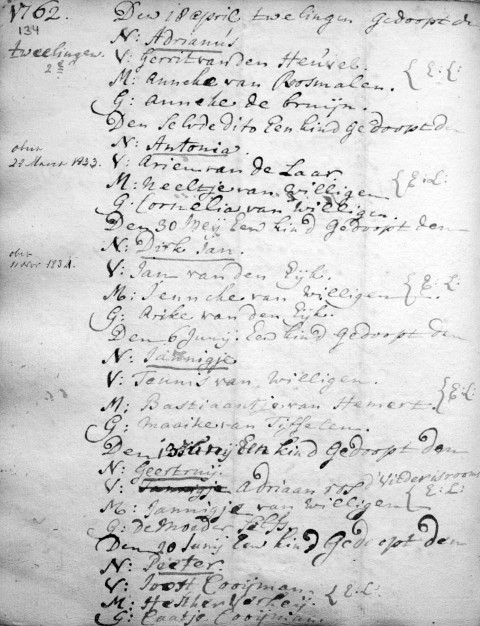 1762.
134
Den 18 april twelingen gedoopt de
tweelingen
2e
N: Adrianus
V: Gerrit van den Heuvel.
M: Anneke van Rosmalen. {E:L:
G: Anneke de bruijn.
Den Selvde dito Een kind gedoopt den
N: Antonia.
obiit
28 Maart 1833.
V: Arien van de Laar.
M: Neeltje van Willigen {E:L:
G: Cornelia van Willigen.
Den 30 Meij Een kind gedoopt den
N: Dirk Jan.
obiit
11 Nov: 1834.
V: Jan van den Eijk.
M: Jenneke van Willigen {E:L:
G: Aike van den Eijk.
Den 6 Junij Een kind gedoopt den
N: Jannigje
V: Teunis van Willigen.
M: Bastiaantje van Hamert. {E:L:
G: Maaike van Tiffelen.
Den 13 Junij Een kind gedoopt den
N: Geertruij.
V: Adriaan
M: Jannigje van Willigen {E:L:
G: De Moeder self.
Den 20 Junij Een kind Gedoopt den
N: Peeter.
V: Joost Cooijman.
M: Hester Verheij. {E:L:
G: Caatje Cooijman.